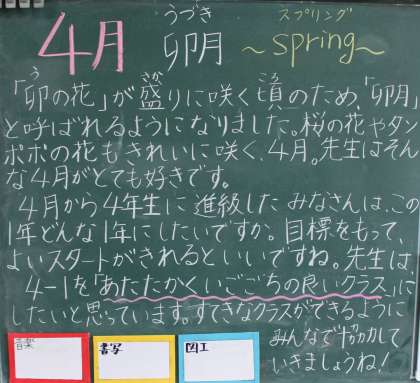 うづき スプリング
4月 卯月 ～spring～
う さか ころ
「卯の花」が盛りに咲く頃のため、「卯月」
と呼ばれるようになりました。桜の花やタン
ポポの花もきれいに咲く、4月。先生はそん
な4月がとても好きです。
4月から4年生に進級したみなさんは、この
1年どんな1年にしたいですか。目標をもって、
よいスタートがきれるといいですね。先生は
4-1を「あたたかくいごこちの良いクラス」に
したいと思っています。すてきなクラスができるように
みんなで協力して
いきましょうね!
音楽 書写 図工